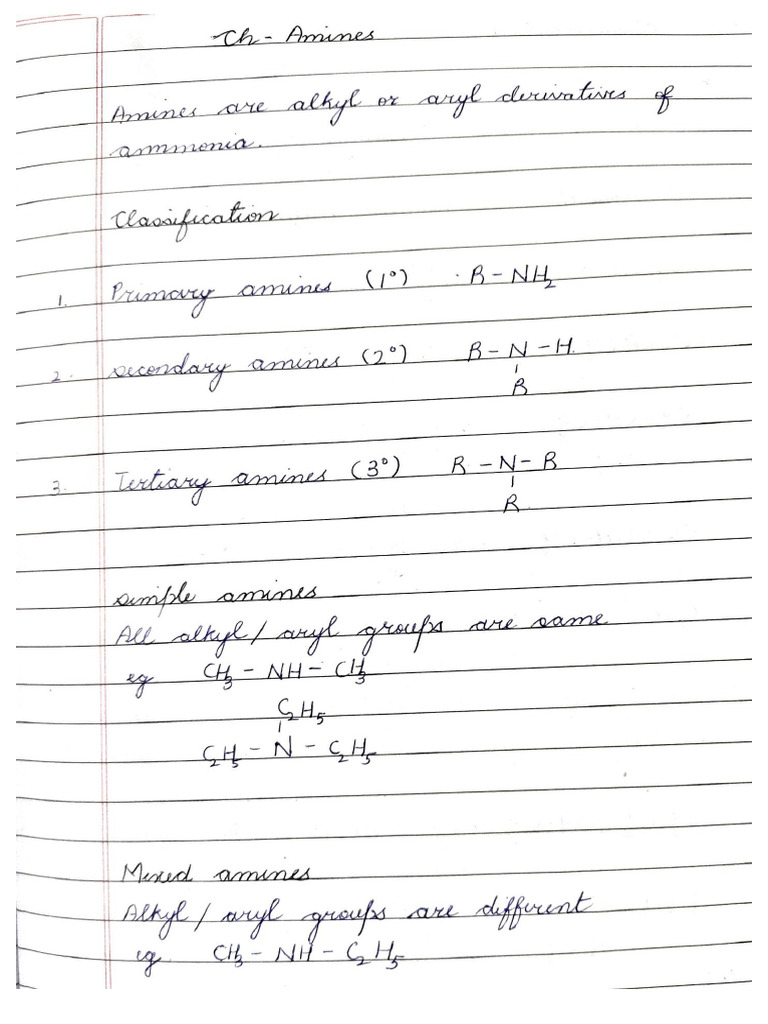 Ch - Amines
Amines are alkyl or aryl derivatives of
ammonia.
Classification
1. Primary amines (1°) R - NH₂
2. secondary amines (2°) R - N - H
R
3. Tertiary amines (3°) R - N - R
R
simple amines
All alkyl / aryl groups are same
eg CH₃ - NH - CH₃
C₂H₅
C₂H₅ - N - C₂H₅
Mixed amines
Alkyl / aryl groups are different
eg CH₃ - NH - C₂H₅